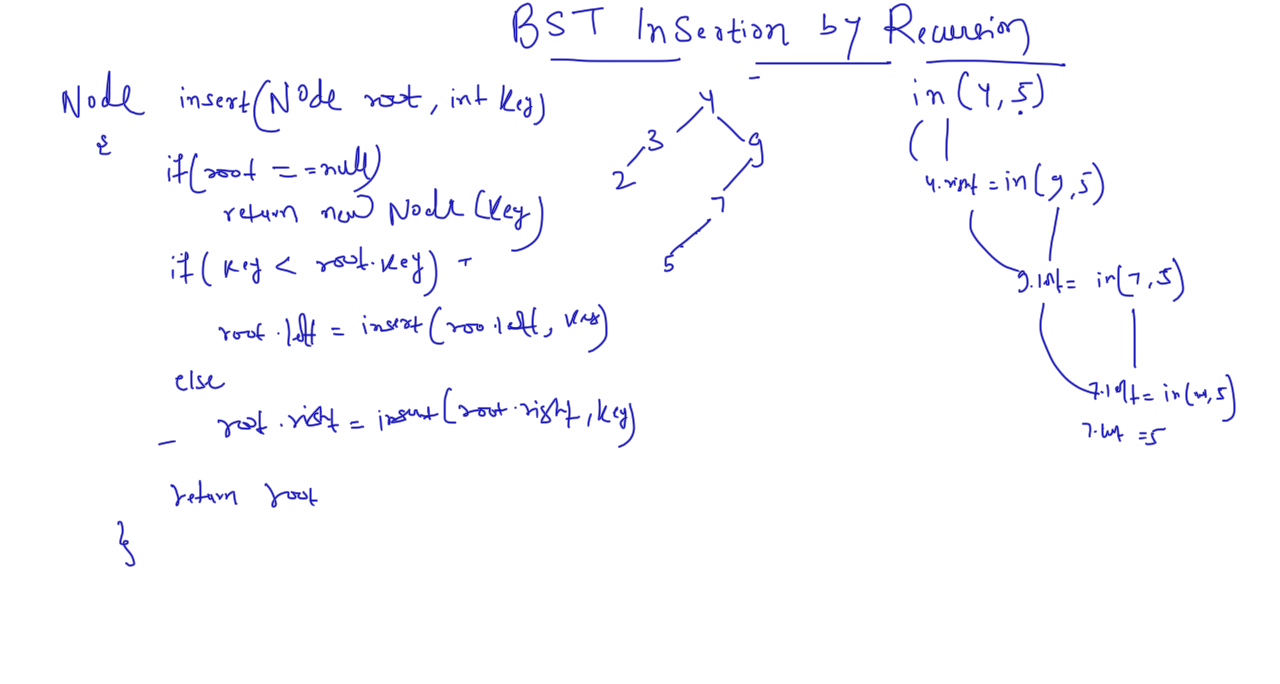 BST Insertion by Recursion
Node insert(Node root, int key)
{
if(root == null)
return new Node(key)
if(key < root.key)
root.left = insert(roo.left, key)
else
root.right = insert(root.right, key)
return root
}
4
3
9
2
7
5
in(4,5)
4.right = in(9,5)
9.left = in(7,5)
7.left = in(null,5)
7.left = 5